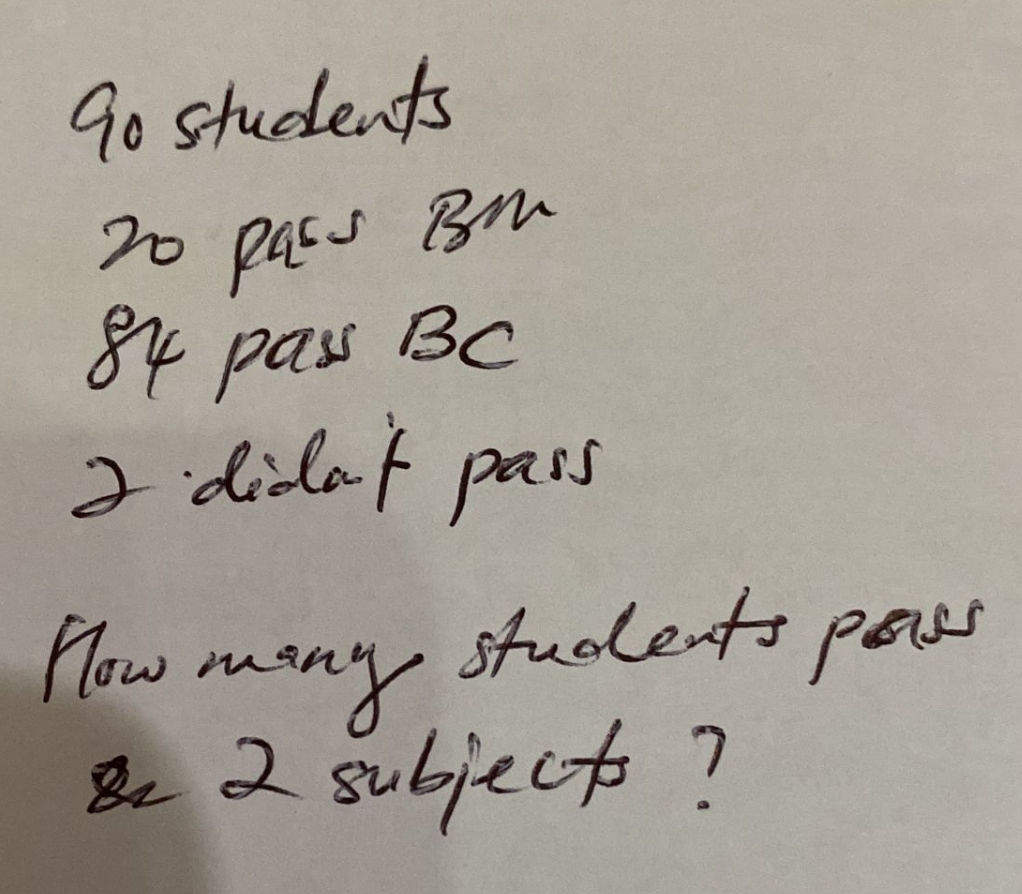 90 students
20 pass BM
84 pass BC
2 didn't pass
How many students pass
2 subjects ?